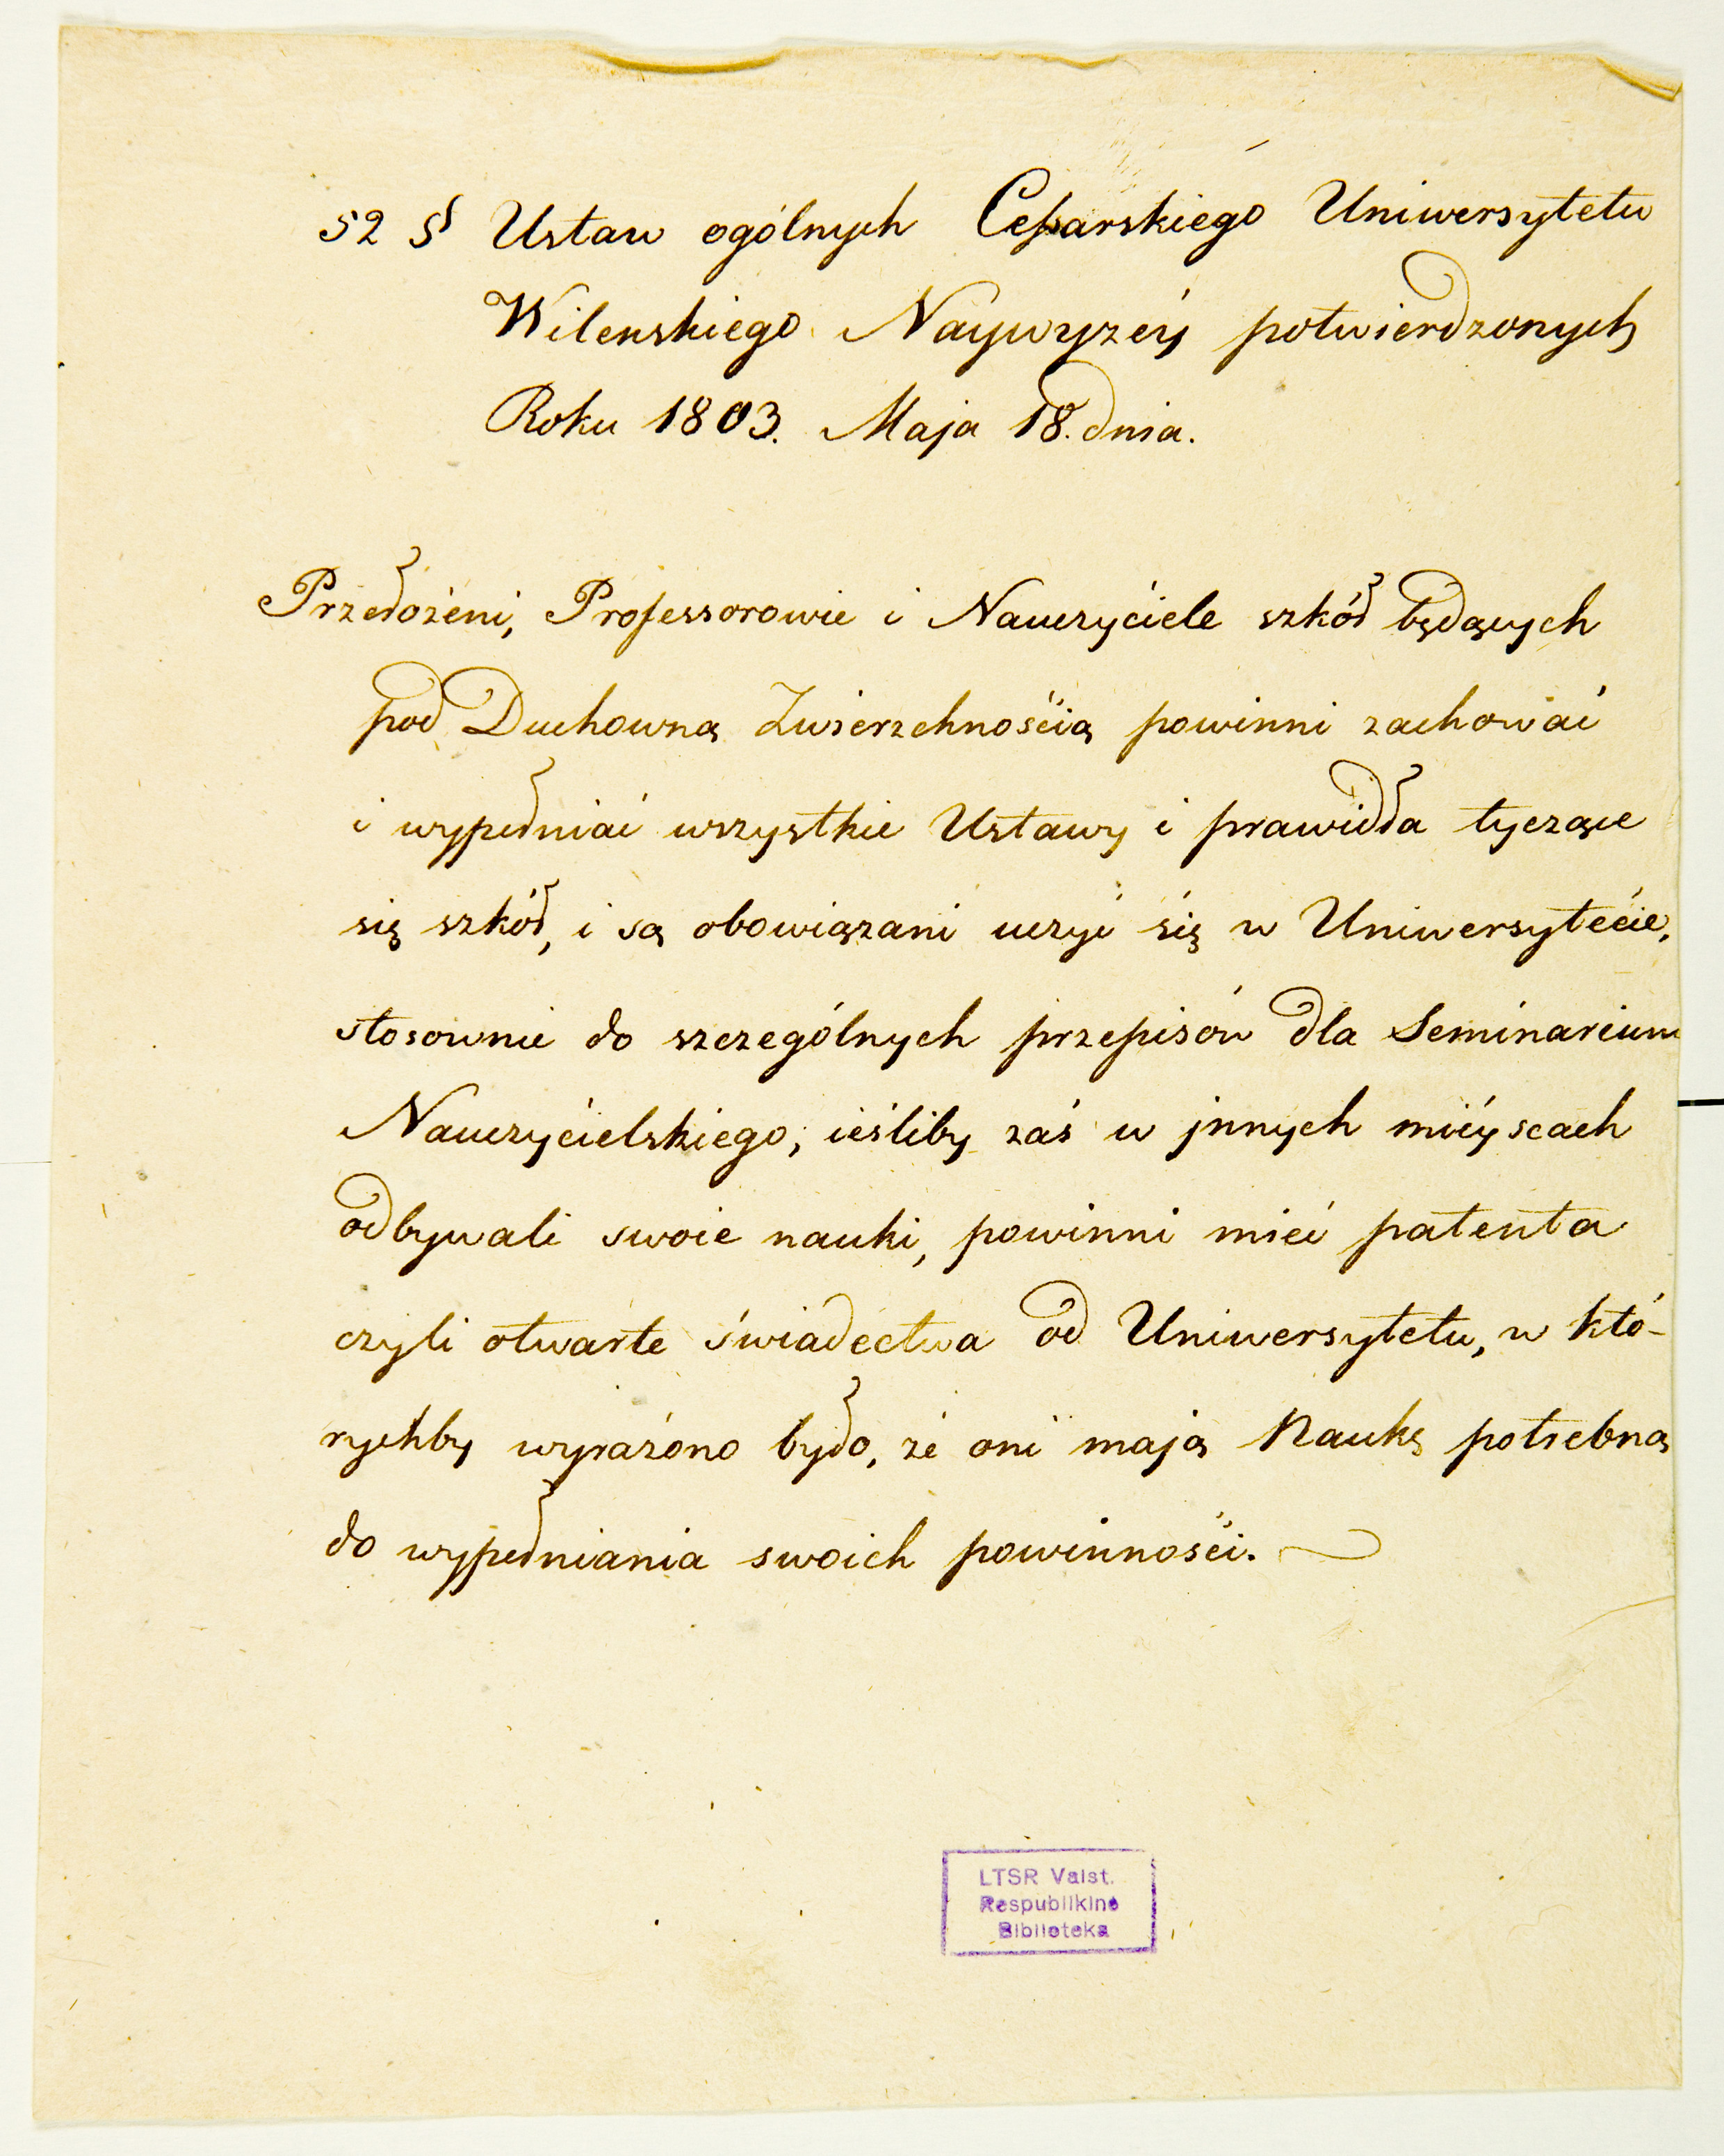 52 § Ustaw ogólnych Cessarskiego Uniwersytetu
Wilenskiego Naywyzey potwierdzonych
Roku 1803. Maja 18. dnia.
Przełożeni, Professorowie i Nauczyciele szkół będących
pod Duchowną Zwierzchnośćią powinni zachować
i wypełniać wszystkie Ustawy i prawidła tyczące
się szkół, i są obowiązani uczyć się w Uniwersytećie,
stosownie do szczególnych przepisów dla Seminarium
Nauczyćielskiego, ieśliby zaś w jnnych mieyscach
odbywali swoie nauki, powinni mieć patenta
czyli otwarte świadectwa od Uniwersytetu, w któ-
rychby wyrażono było, że oni mają Naukę potrebną
do wypełniania swoich powinnośći.
LTSR Valst.
Respublikinė
Biblioteka